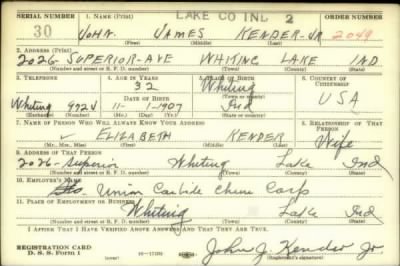 SERIAL NUMBER 1. NAME (Print) LAKE CO IND. 2 ORDER NUMBER
30 JOHN JAMES KENDER-JR 2049
(First) (Middle) (Last)
2. ADDRESS (Print)
2026-SUPERIOR-AVE WHITING LAKE IND
(Number and street or R. F. D. number) (Town) (County) (State)
3. TELEPHONE 4. AGE IN YEARS 5. PLACE OF BIRTH 6. COUNTRY OF CITIZENSHIP
32 Whiting
DATE OF BIRTH (Town or county)
Whiting 972J 11- 1-1907 Ind USA
(Exchange) (Number) (Mo.) (Day) (Yr.) (State or country)
7. NAME OF PERSON WHO WILL ALWAYS KNOW YOUR ADDRESS 8. RELATIONSHIP OF THAT PERSON
ELIZABETH KENDER Wife
(Mr., Mrs., Miss) (First) (Middle) (Last)
9. ADDRESS OF THAT PERSON
2026-Superior Whiting Lake Ind
(Number and street or R. F. D. number) (Town) (County) (State)
10. EMPLOYER'S NAME
Union Carbide Chem Corp
11. PLACE OF EMPLOYMENT OR BUSINESS
Whiting Lake Ind
(Number and street or R. F. D. number) (Town) (County) (State)
I AFFIRM THAT I HAVE VERIFIED ABOVE ANSWERS AND THAT THEY ARE TRUE.
REGISTRATION CARD
D. S. S. Form 1 16-17105 John J. Kender Jr
(Registrant's signature)